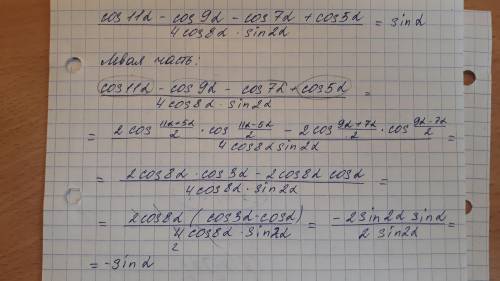 cos11α - cos9α - cos7α + cos5α / 4cos8α · sin2α = sinα
Левая часть:
cos11α - cos9α - cos7α + cos5α / 4cos8α · sin2α =
= 2cos (11α+5α)/2 · cos (11α-5α)/2 - 2cos (9α+7α)/2 · cos (9α-7α)/2 / 4cos8α sin2α =
= 2cos8α · cos3α - 2cos8α cosα / 4cos8α · sin2α =
= 2cos8α (cos3α - cosα) / 4cos8α · sin2α = -2sin2α sinα / 2sin2α =
2
= -sinα